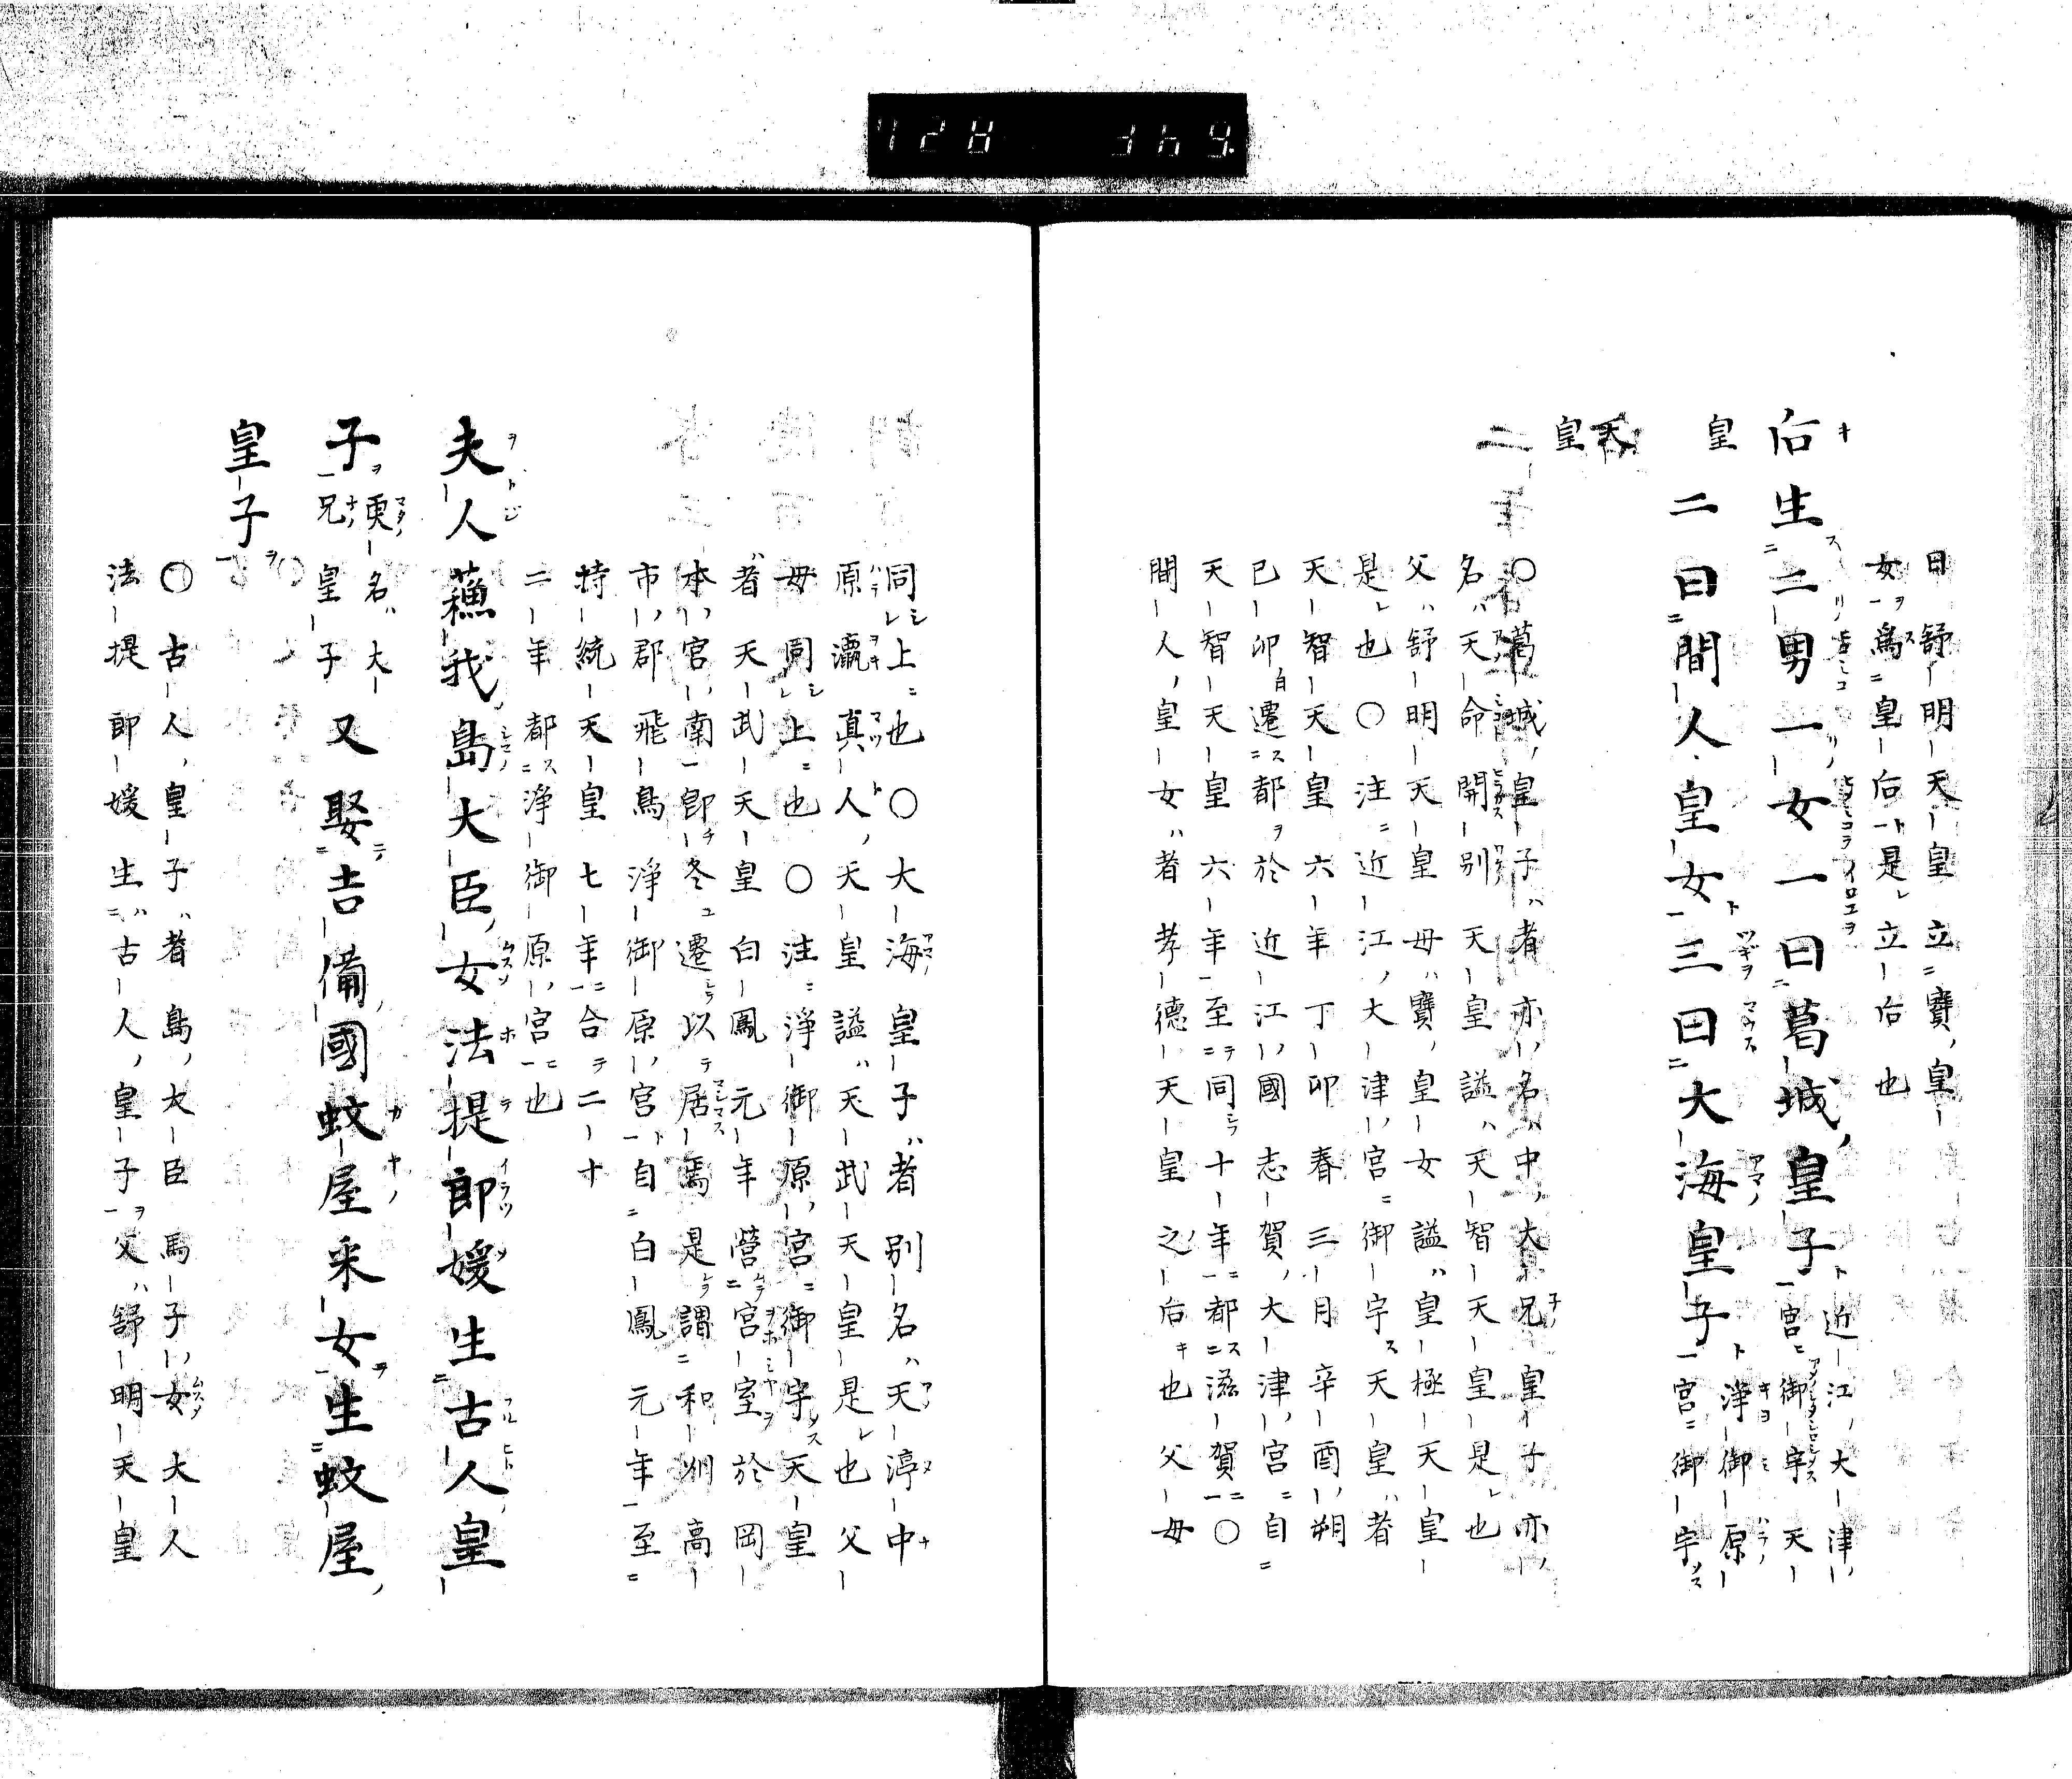 曰舒明天皇立寶皇
女爲皇后是立后也
后生二男一女一曰葛城皇子近江大津
宮御宇天
皇
二曰間人皇女三曰大海皇子淨御原
宮御宇
天
皇
二
〇葛城皇子者亦名中大兄皇子亦
名天命開別天皇謚天智天皇是也
父舒明天皇母寶皇女謚皇極天皇
是也〇注近江大津宮御宇天皇者
天智天皇六年丁卯春三月辛酉朔
己卯遷都於近江國志賀大津宮自
天智天皇六年至同十年都滋賀〇
間人皇女者孝德天皇之后也父母
同上也〇大海皇子者別名天渟中
原瀛真人天皇謚天武天皇是也父
母同上也〇注淨御原宮御宇天皇
者天武天皇白鳳元年營宮室於岡
本宮南即冬遷以居焉是謂和州高
市郡飛鳥淨御原宮自白鳳元年至
持統天皇七年合二十
二年都淨御原宮也
夫人蘓我島大臣女法提郎媛生古人皇
子更名大
兄皇子又娶吉備國蚊屋采女生蚊屋
皇子
〇古人皇子者島大臣馬子女大人
法提郎媛生古人皇子父舒明天皇